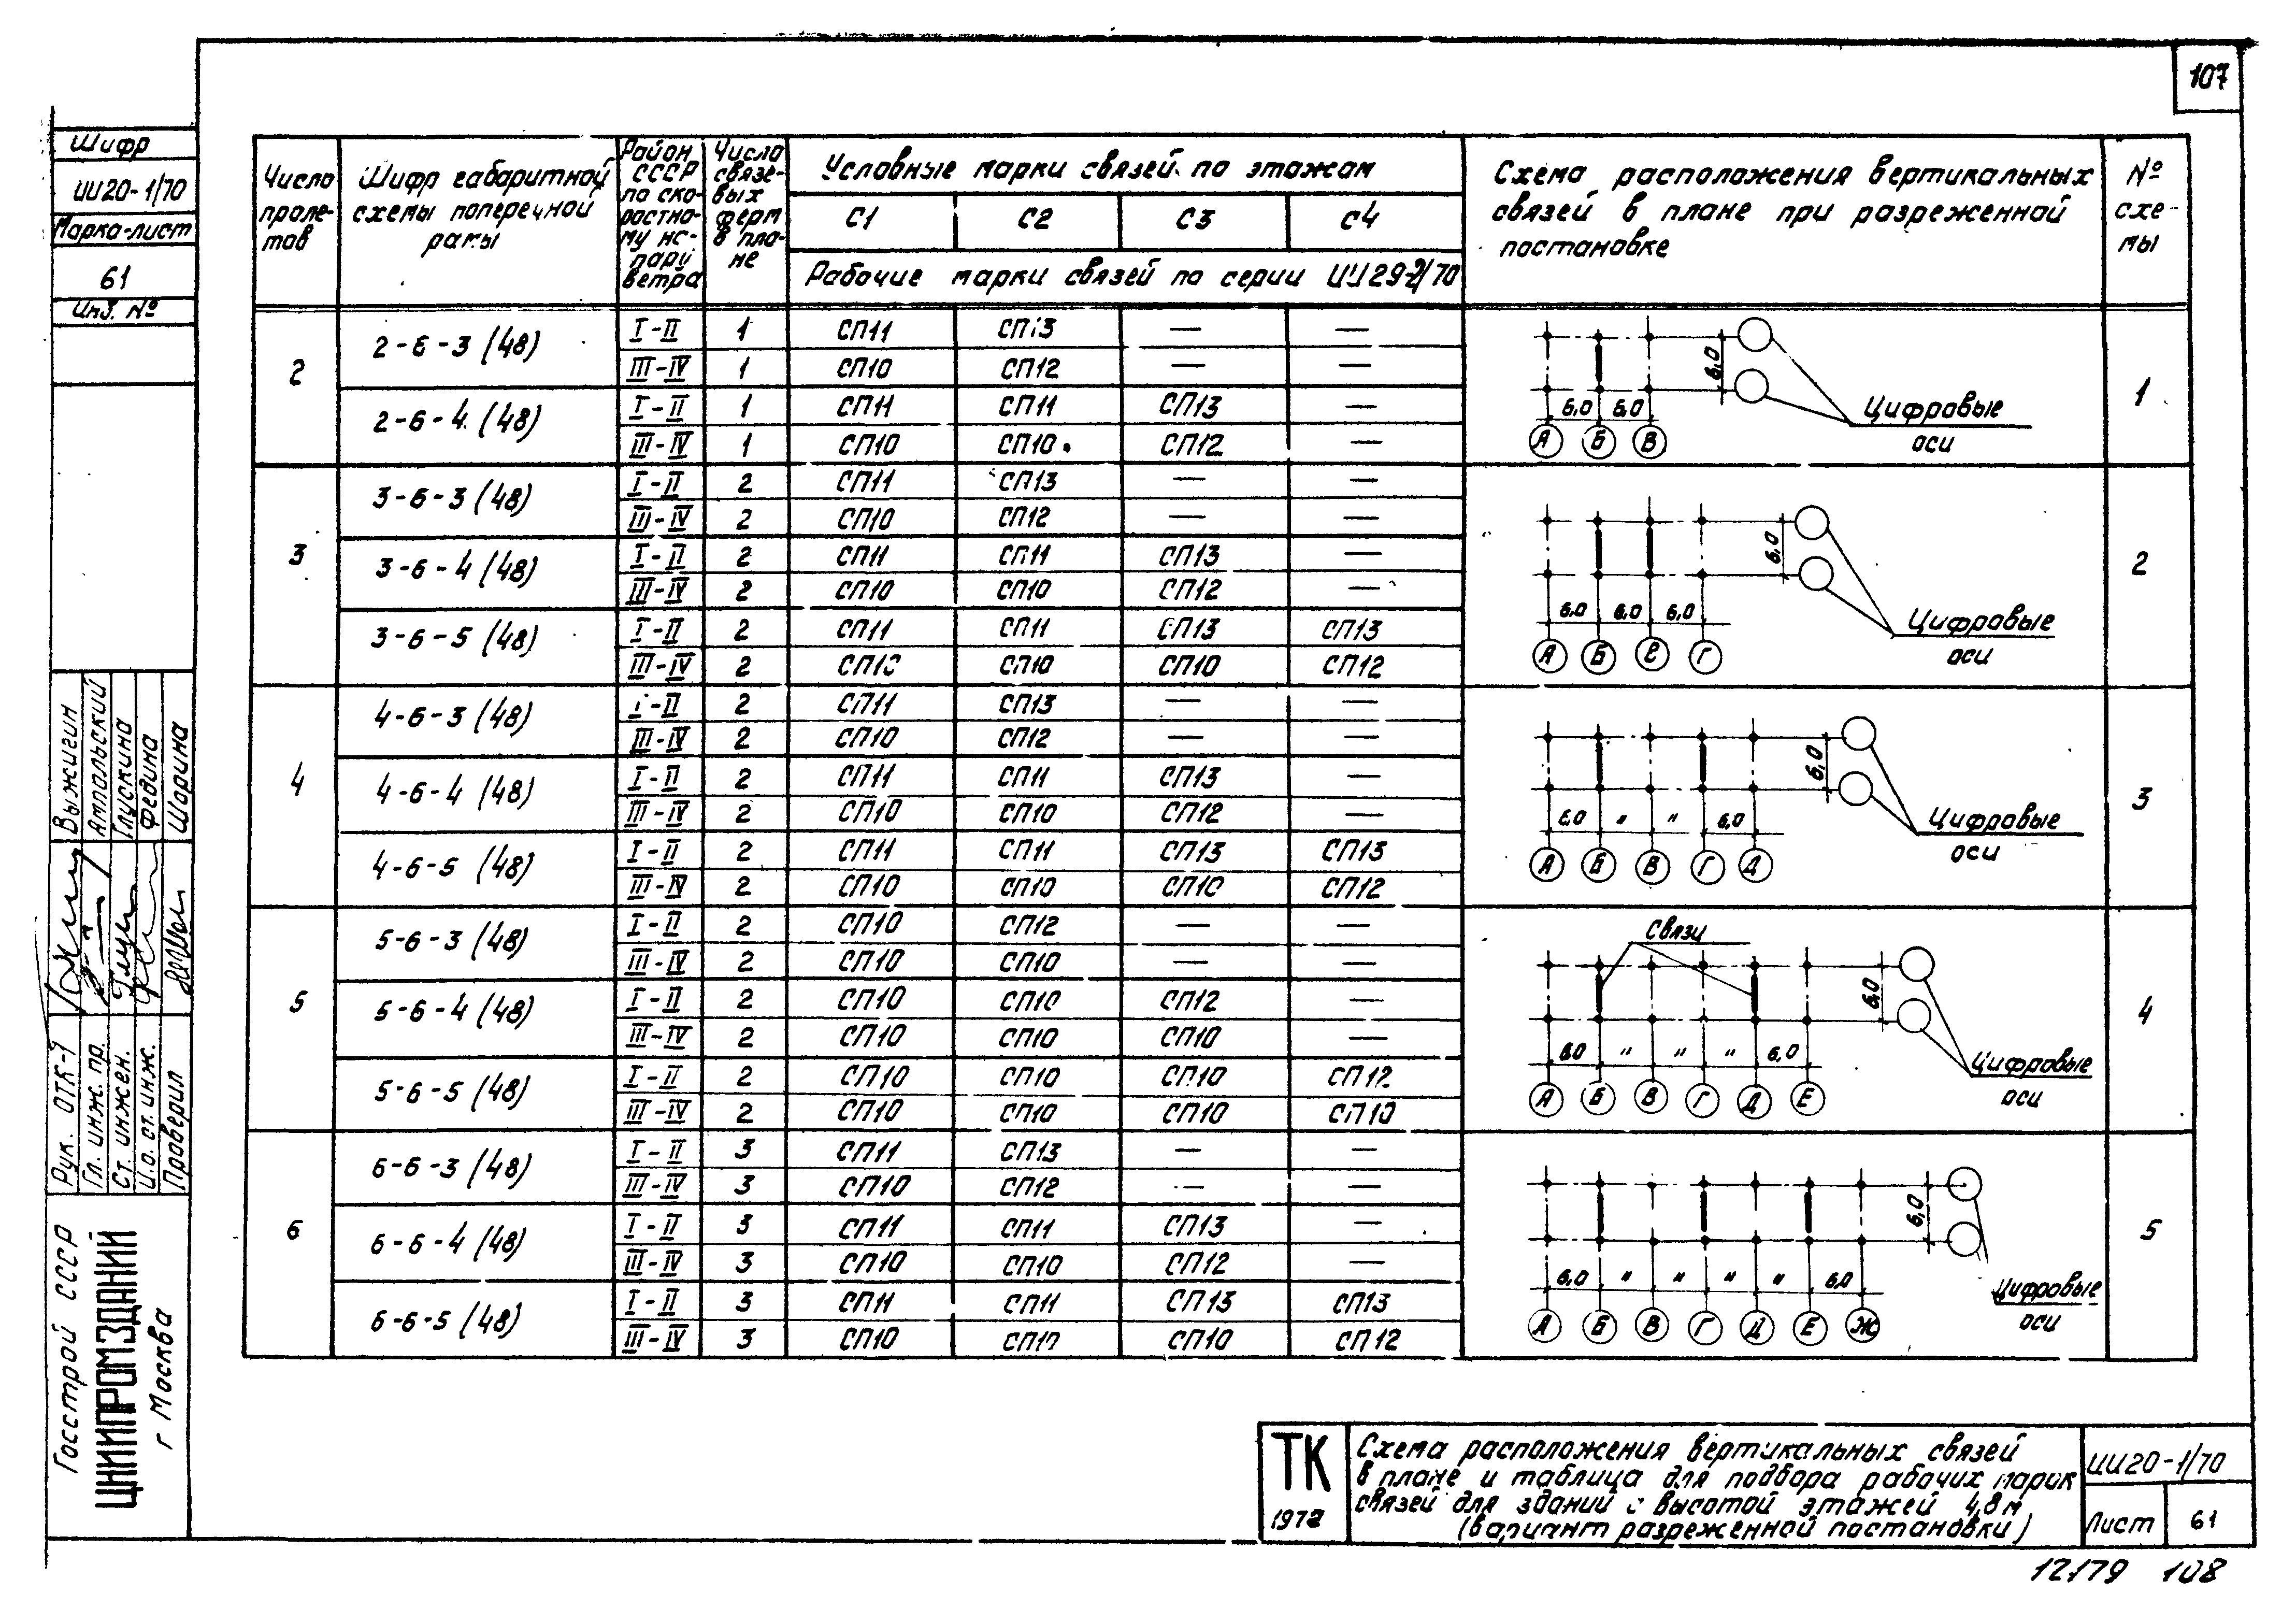 107
Шифр
ИИ20-1/70
Марка-лист
61
Инв. №
Число пролетов
Шифр габаритной схемы поперечной рамы
Район СССР по скоростному напору ветра
Число связевых ферм в плане
Условные марки связей по этажам
С1 С2 С3 С4
Рабочие марки связей по серии ИИ29-2/70
Схема расположения вертикальных
связей в плане при разреженной
постановке
№
схе-
мы
2
2-6-3 (48)
I-II 1 СП11 СП13 — —
III-IV 1 СП10 СП12 — —
2-6-4 (48)
I-II 1 СП11 СП11 СП13 —
III-IV 1 СП10 СП10 СП12 —
6,0
6,0 6,0
А Б В
Цифровые
оси
1
3
3-6-3 (48)
I-II 2 СП11 СП13 — —
III-IV 2 СП10 СП12 — —
3-6-4 (48)
I-II 2 СП11 СП11 СП13 —
III-IV 2 СП10 СП10 СП12 —
3-6-5 (48)
I-II 2 СП11 СП11 СП13 СП13
III-IV 2 СП10 СП10 СП10 СП12
6,0
6,0 6,0 6,0
А Б В Г
Цифровые
оси
2
4
4-6-3 (48)
I-II 2 СП11 СП13 — —
III-IV 2 СП10 СП12 — —
4-6-4 (48)
I-II 2 СП11 СП11 СП13 —
III-IV 2 СП10 СП10 СП12 —
4-6-5 (48)
I-II 2 СП11 СП11 СП13 СП13
III-IV 2 СП10 СП10 СП10 СП12
6,0
6,0 " " 6,0
А Б В Г Д
Цифровые
оси
3
5
5-6-3 (48)
I-II 2 СП10 СП12 — —
III-IV 2 СП10 СП10 — —
5-6-4 (48)
I-II 2 СП10 СП10 СП12 —
III-IV 2 СП10 СП10 СП10 —
5-6-5 (48)
I-II 2 СП10 СП10 СП10 СП12
III-IV 2 СП10 СП10 СП10 СП10
Связи
6,0
6,0 " " " 6,0
А Б В Г Д Е
Цифровые
оси
4
6
6-6-3 (48)
I-II 3 СП11 СП13 — —
III-IV 3 СП10 СП12 — —
6-6-4 (48)
I-II 3 СП11 СП11 СП13 —
III-IV 3 СП10 СП10 СП12 —
6-6-5 (48)
I-II 3 СП11 СП11 СП13 СП13
III-IV 3 СП10 СП10 СП10 СП12
6,0
6,0 " " " " 6,0
А Б В Г Д Е Ж
Цифровые
оси
5
Рук. ОТК-1 Выжигин
Гл. инж. пр. Ампольский
Ст. инжен. Глускина
И.о. ст. инж. Федина
Проверил Шорина
Госстрой СССР
ЦНИИПРОМЗДАНИЙ
г Москва
ТК
1972
Схема расположения вертикальных связей
в плане и таблица для подбора рабочих марок
связей для зданий с высотой этажей 4,8м
(вариант разреженной постановки)
ИИ20-1/70
Лист 61
12179 108